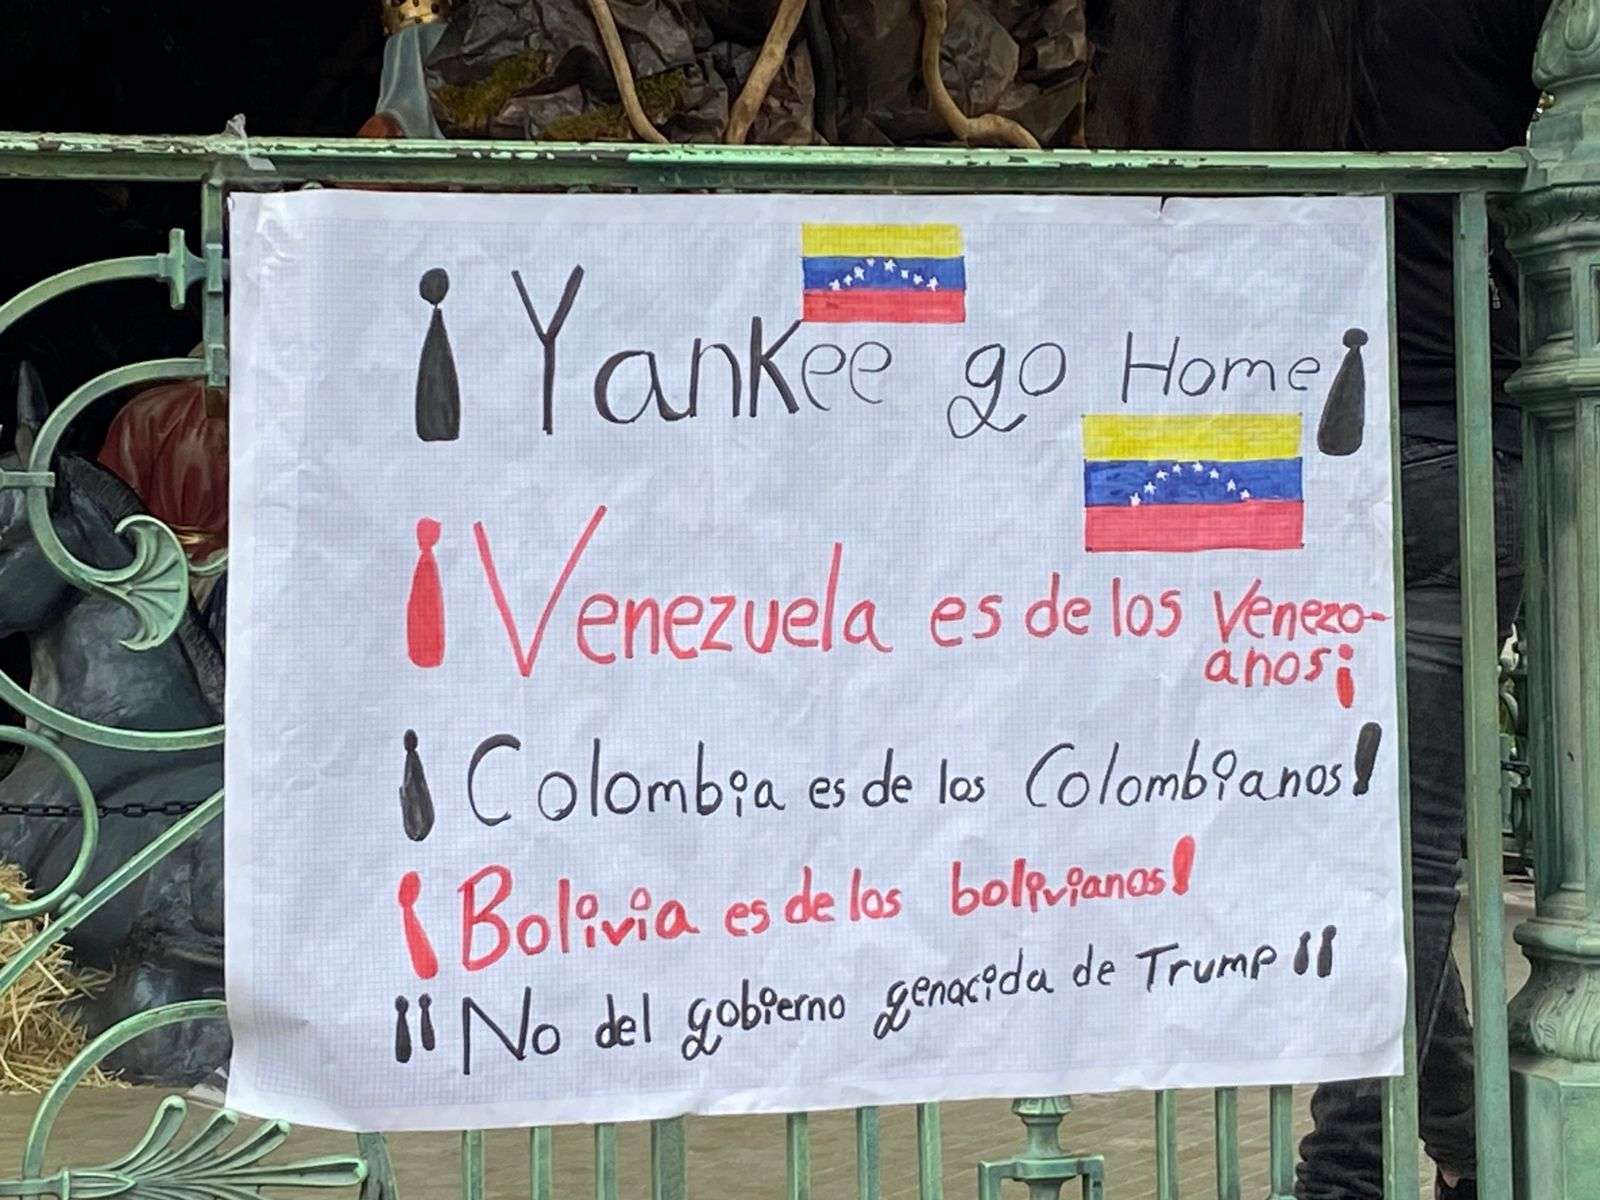 ¡Yankee go Home¡
¡Venezuela es de los Venezo-
anos¡
¡Colombia es de los Colombianos!
¡Bolivia es de los bolivianos!
¡¡No del gobierno genacida de Trump!!